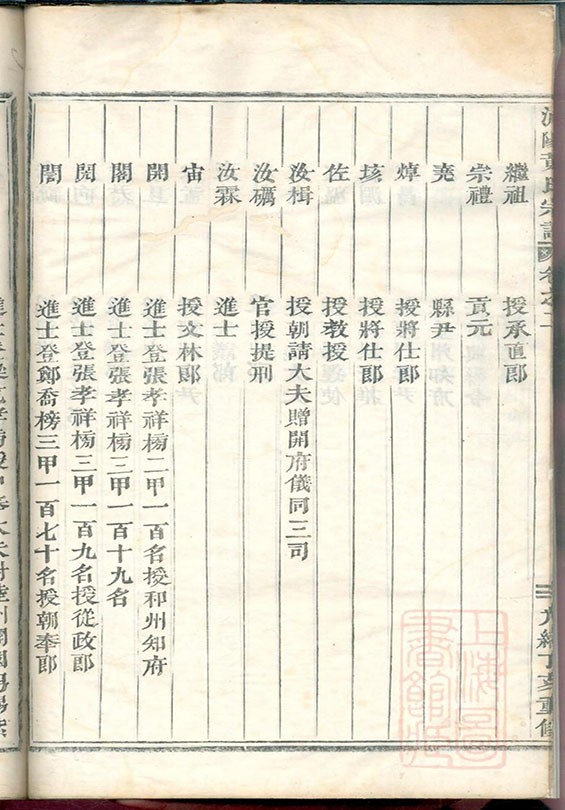 黃氏宗譜 卷之一 二 光緒丁亥重修
繼祖 授承直郎
崇禮 貢元
堯 縣尹
焯 授將仕郎
垓 授將仕郎
佐 授教授
汝楫 授朝請大夫贈開府儀同三司
汝礪 官授提刑
汝霖 進士
宙 授文林郎
開 進士登張孝祥榜二甲一百名授和州知府
閣 進士登張孝祥榜三甲一百十九名
閱 進士登張孝祥榜三甲一百九名授從政郎
誾 進士登鄭喬榜三甲一百七十名授朝奉郎
上海圖書館藏